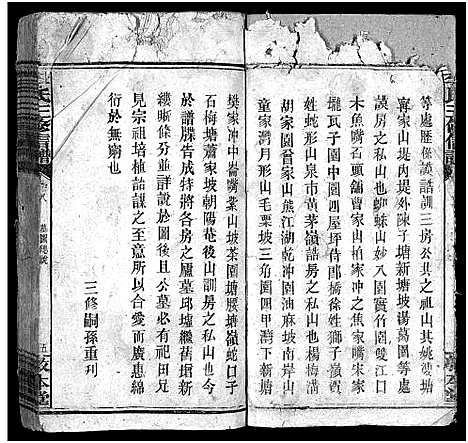 等處歷係謨誥訓三房公共之祖山其姚夔塘
甯家山堤內堤外陳子塘新塘坡湯萬園等處
謨房之私山也蝌蚪山妙入園寶竹園雙江口
木魚嘴石頭舖曹家山柏家園軍田沖姑竹坡
壠瓦子園中園四屋坪荷郎橋徐姓獅子嶺
姓蛇形山泉市黃茅嶺誥房之私山也楊梅
胡家園晉家山熊江湖乾沖園油麻坡南岸山
童家灣月形山毛栗坡三角園四甲灣下新塘
樊家沖中崙嘴紫山坡茶園塘腰塘嶺蛇口子
石梅塘蕭家坡朝陽菴後山訓房之私山也今
於譜牒告成特將各房之廬墓邱壚繼舊增新
縷晰條分並詳說於圖後以公墓必有祀田兄
見宗祖培植詒謀之至意所以合愛而廣惠綿
衍於無窮也
三修嗣孫重刊
五
敦本堂